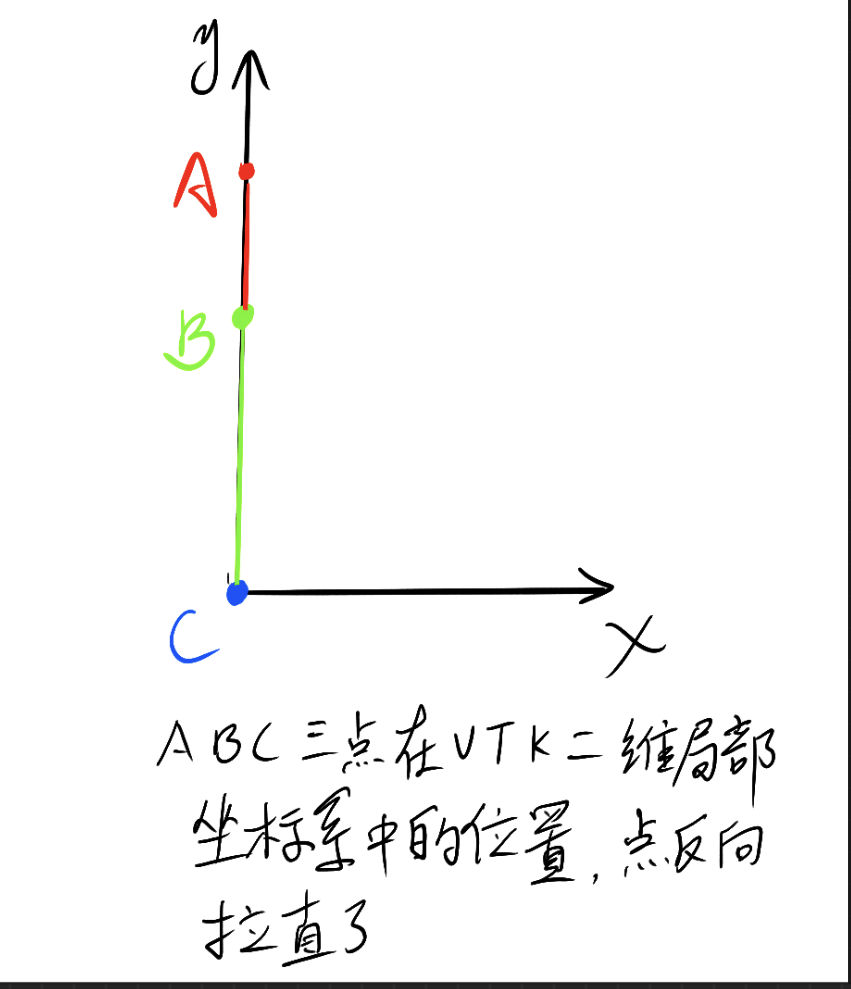 y
A
B
C
x
ABC三点在VTK二维局部
坐标系中的位置,点反向
拉直了